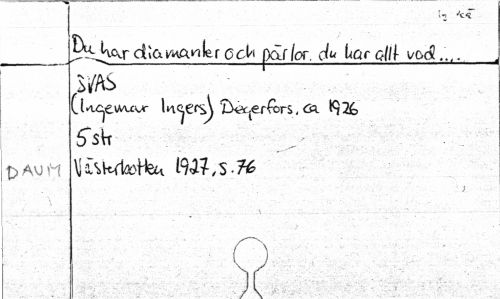 Du har diamanter och pärlor. du har allt vad.....
SVAS
(Ingemar Ingers) Degerfors, ca 1926
5 str
DAUM Västerbotten 1927, s. 76